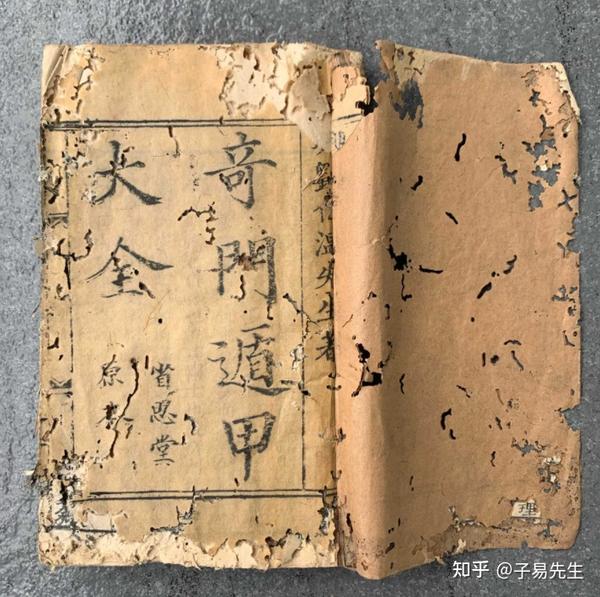 劉伯溫先生著
竒門遁甲
大全
省堂
原
理
知乎 @子易先生